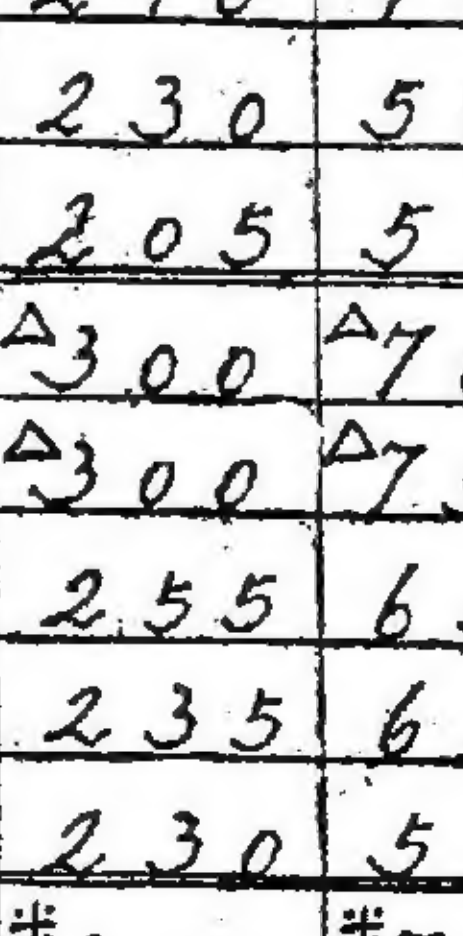 230 5
205 5
△300 △7
△300 △7
255 6
235 6
230 5
※ ※